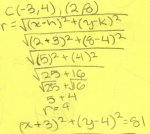 C(-3,4), (2,8)
r=√(x-h)²+(y-k)²
√(2+3)²+(8-4)²
√(5)²+(4)²
√25+16
√25+√16
5+4
r=9
(x+3)²+(y-4)²=81